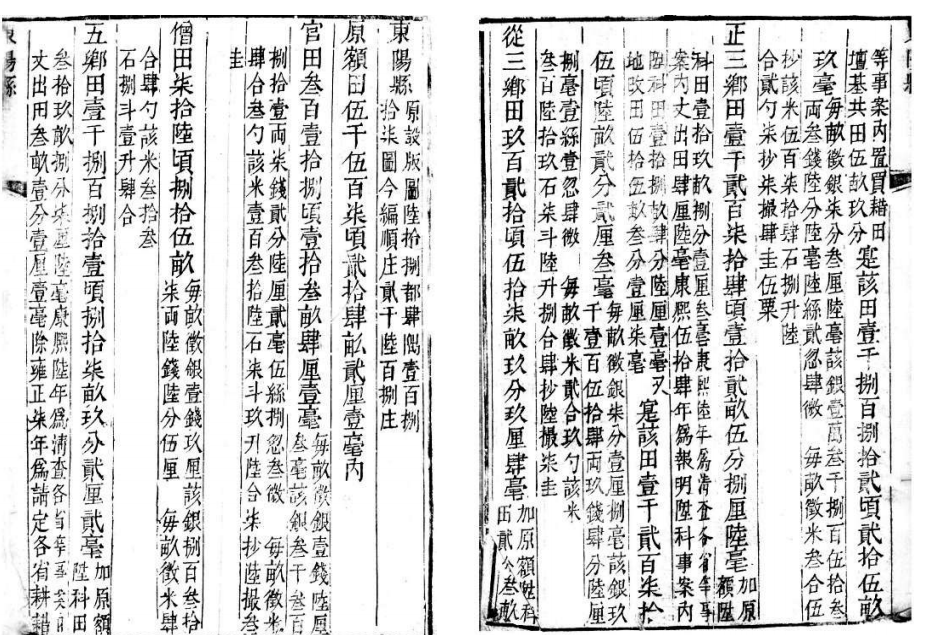 東陽縣
原設版圖陸拾捌都肆隅壹百捌
拾柒圖今編順庄貳千陸百捌庄
原額田伍千伍百柒頃貳拾肆畝貳厘壹毫內
官田叁百壹拾捌頃壹拾叁畝肆厘壹毫
每畝徵銀壹錢陸厘
叁毫該銀叁千叁百
捌拾壹兩柒錢貳分陸厘貳毫伍絲捌忽叁微 每畝徵米
肆合叁勺該米壹百叁拾陸石柒斗玖升陸合柒抄陸撮叁
圭
僧田柒拾陸頃捌拾伍畝
每畝徵銀壹錢玖厘該銀捌百叁拾
柒兩陸錢陸分伍厘 每畝徵米肆
合肆勺該米叁拾叁
石捌斗壹升肆合
五鄉田壹千捌百捌拾壹頃捌拾柒畝玖分貳厘貳毫
加原額
陞科田
叁拾玖畝捌分柒厘陸毫康熙陸年為清查各省等事案內
丈出田叁畝壹分壹厘壹毫雍正柒年為請定各省耕耤
等事案內置買耤田
壇基共田伍畝玖分
寔該田壹千捌百捌拾貳頃貳拾伍畝
玖毫
每畝徵銀柒分叁厘陸毫該銀壹萬叁千捌百伍拾叁
兩叁錢陸分陸毫陸絲貳忽肆微 每畝徵米叁合伍
抄該米伍百柒拾肆石捌升陸
合貳勺柒抄柒撮肆圭伍粟
正三鄉田壹千貳百柒拾肆頃壹拾貳畝伍分捌厘陸毫
加原
額陞
科田壹拾玖畝捌分壹厘叁毫康熙陸年為清查各省等事
案內丈出田肆厘陸毫康熙伍拾肆年為報明陞科事案內
陞科田壹拾捌畝肆分陸厘壹毫又
地改田伍拾伍畝叁分壹厘柒毫
寔該田壹千貳百柒拾
伍頃陸畝貳分貳厘叁毫
每畝徵銀柒分壹厘捌毫該銀玖
千壹百伍拾肆兩玖錢肆分陸厘
捌毫壹絲壹忽肆微 每畝徵米貳合玖勺該米
叁百陸拾玖石柒斗陸升捌合肆抄陸撮柒圭
從三鄉田玖百貳拾頃伍拾柒畝玖分玖厘肆毫
加原額陞科
田貳分叁畝